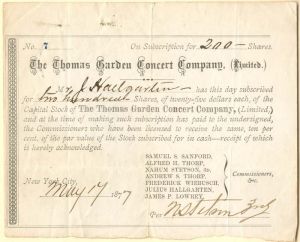 No. 7 On Subscription for 200 Shares.
The Thomas Garden Concert Company, (Limited.)
Mr J Hallgarten has this day subscribed
for two hundred Shares, of twenty-five dollars each, of the
Capital Stock of The Thomas Garden Concert Company, (Limited,)
and at the time of making such subscription has paid to the undersigned,
the Commissioners who have been licensed to receive the same, ten per
cent. of the par value of the Stock subscribed for in cash—receipt of which
is hereby acknowledged.
SAMUEL S. SANFORD,
ALFRED H. THORP,
NAHUM STETSON,
ANDREW S. THORP,
FREDERICK WIEBUSCH,
JULIUS HALLGARTEN,
JAMES P. LOWREY,
Commissioners, &c.
New York City,
May 17 1877
Per N Stetson